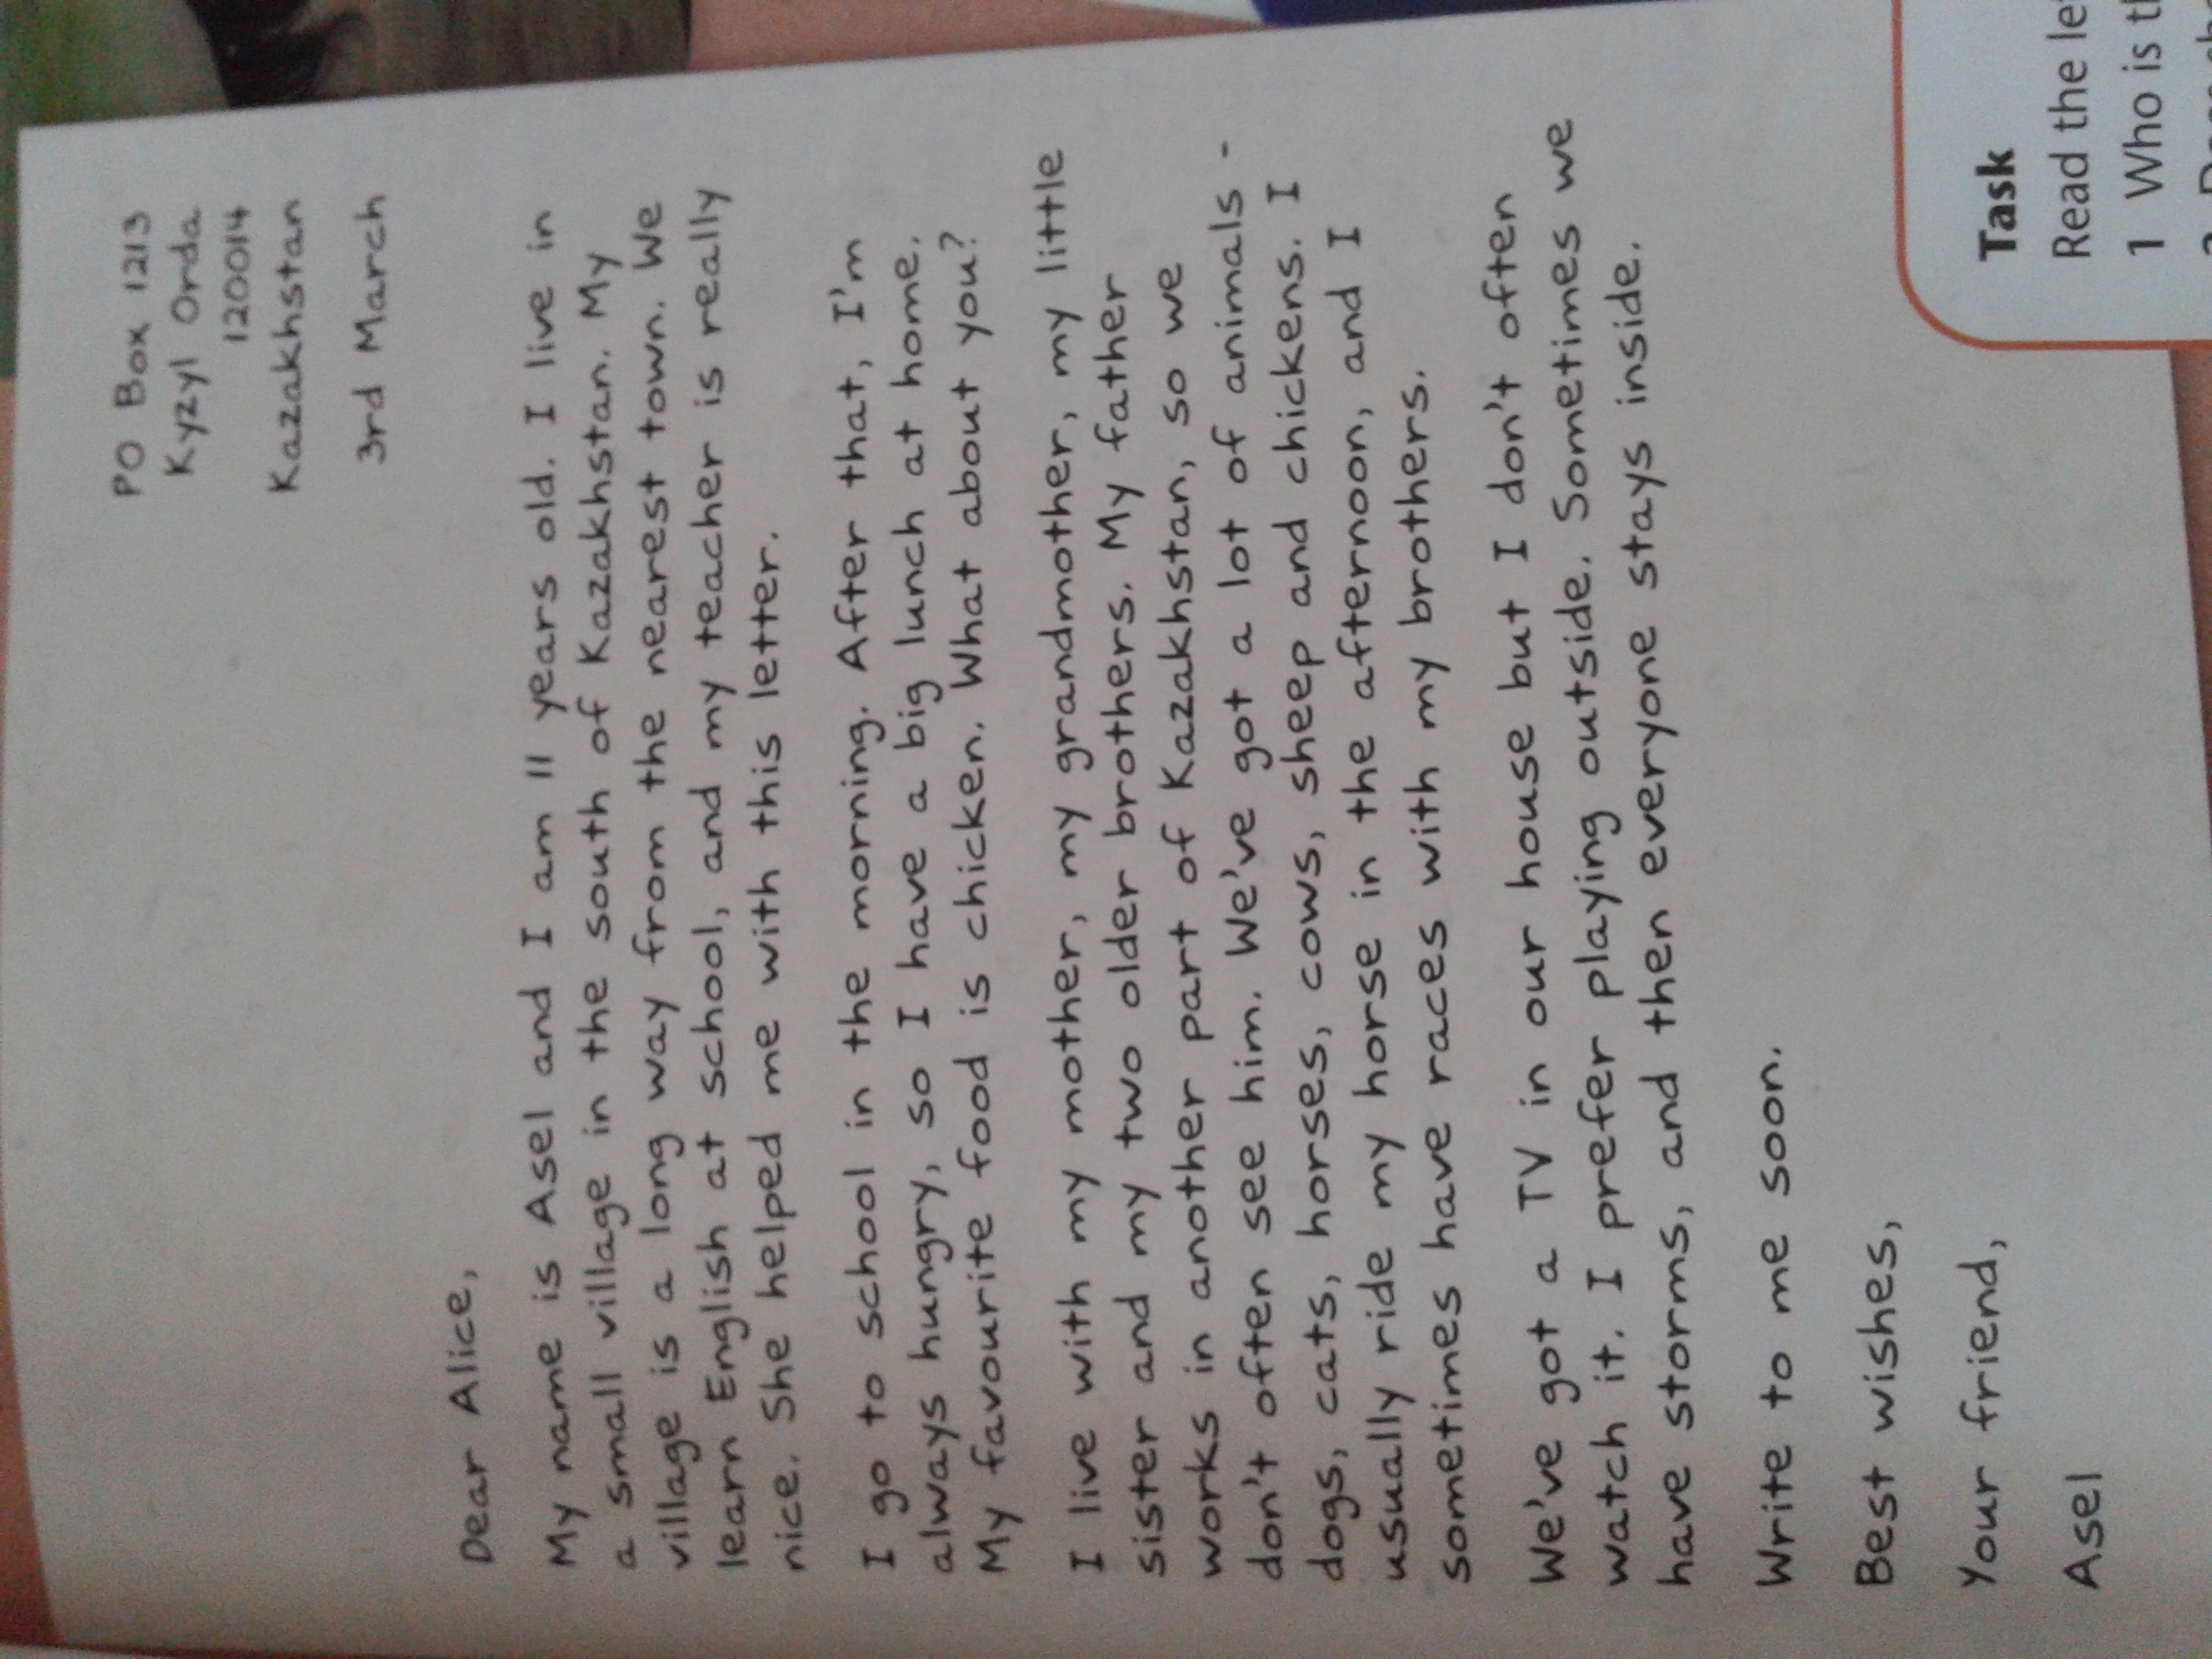 PO Box 1213
Kyzyl Orda
120014
Kazakhstan
3rd March
Dear Alice,
My name is Asel and I am 11 years old. I live in
a small village in the south of Kazakhstan. My
village is a long way from the nearest town. We
learn English at school, and my teacher is really
nice. She helped me with this letter.
I go to school in the morning. After that, I'm
always hungry, so I have a big lunch at home.
My favourite food is chicken. What about you?
I live with my mother, my grandmother, my little
sister and my two older brothers. My father
works in another part of Kazakhstan, so we
don't often see him. We've got a lot of animals -
dogs, cats, horses, cows, sheep and chickens. I
usually ride my horse in the afternoon, and I
sometimes have races with my brothers.
We've got a TV in our house but I don't often
watch it. I prefer playing outside. Sometimes we
have storms, and then everyone stays inside.
Write to me soon.
Best wishes,
Your friend,
Asel
Task
Read the
1 Who is